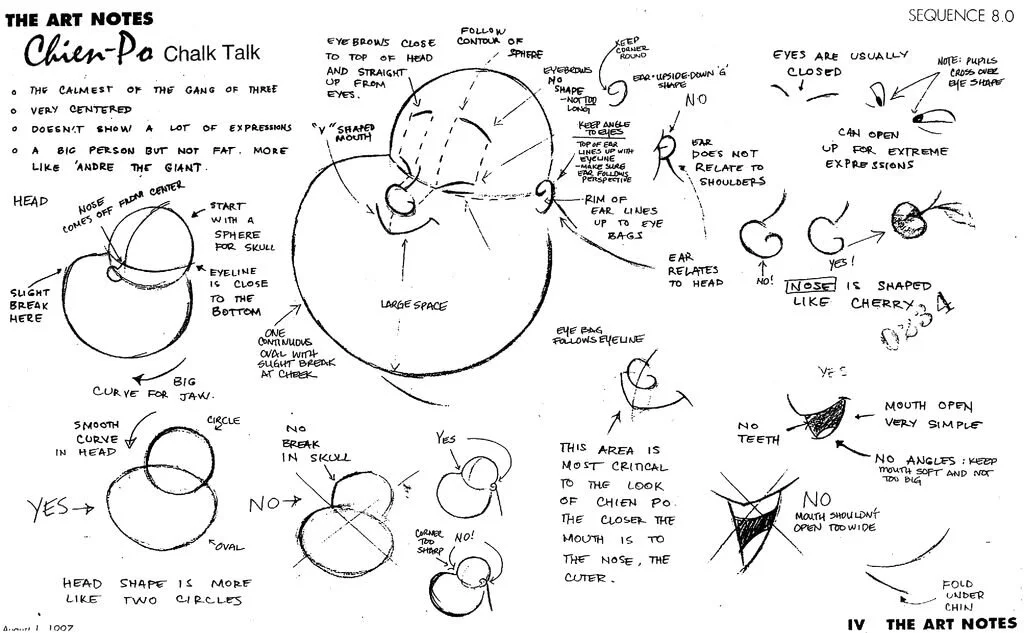 THE ART NOTES
SEQUENCE 8.0
Chien-Po Chalk Talk
THE CALMEST OF THE GANG OF THREE
VERY CENTERED
DOESN'T SHOW A LOT OF EXPRESSIONS
A BIG PERSON BUT NOT FAT. MORE
LIKE 'ANDRE THE GIANT.
HEAD
NOSE
COMES OFF FROM CENTER
START
WITH A
SPHERE
FOR SKULL
EYELINE
IS CLOSE
TO THE
BOTTOM
SLIGHT
BREAK
HERE
BIG
CURVE FOR JAW.
EYEBROWS CLOSE
TO TOP OF HEAD
AND STRAIGHT
UP FROM
EYES.
FOLLOW
CONTOUR OF
SPHERE
"V" SHAPED
MOUTH
EYEBROWS
NO
SHAPE
-NOT TOO
LONG
KEEP
CORNER
ROUND
EAR-UPSIDE-DOWN 'G'
SHAPE
KEEP ANGLE
TO EYES
TOP OF EAR
LINES UP WITH
EYELINE
-MAKE SURE
EAR FOLLOWS
PERSPECTIVE
RIM OF
EAR LINES
UP TO EYE
BAGS
NO
EAR
DOES NOT
RELATE TO
SHOULDERS
EAR
RELATES
TO HEAD
LARGE SPACE
ONE
CONTINUOUS
OVAL WITH
SLIGHT BREAK
AT CHEEK
EYES ARE USUALLY
CLOSED
NOTE: PUPILS
CROSS OVER
EYE SHAPE
CAN OPEN
UP FOR EXTREME
EXPRESSIONS
NO!
YES!
NOSE IS SHAPED
LIKE CHERRY
0234
SMOOTH
CURVE
IN HEAD
CIRCLE
YES
OVAL
HEAD SHAPE IS MORE
LIKE TWO CIRCLES
NO
BREAK
IN SKULL
NO
YES
CORNER
TOO
SHARP
NO!
EYE BAG
FOLLOWS EYELINE
THIS AREA IS
MOST CRITICAL
TO THE LOOK
OF CHIEN PO.
THE CLOSER THE
MOUTH IS TO
THE NOSE, THE
CUTER.
YES
NO
TEETH
MOUTH OPEN
VERY SIMPLE
NO ANGLES: KEEP
MOUTH SOFT AND NOT
TOO BIG
NO
MOUTH SHOULDN'T
OPEN TOO WIDE
FOLD
UNDER
CHIN
August 1, 1997
IV THE ART NOTES